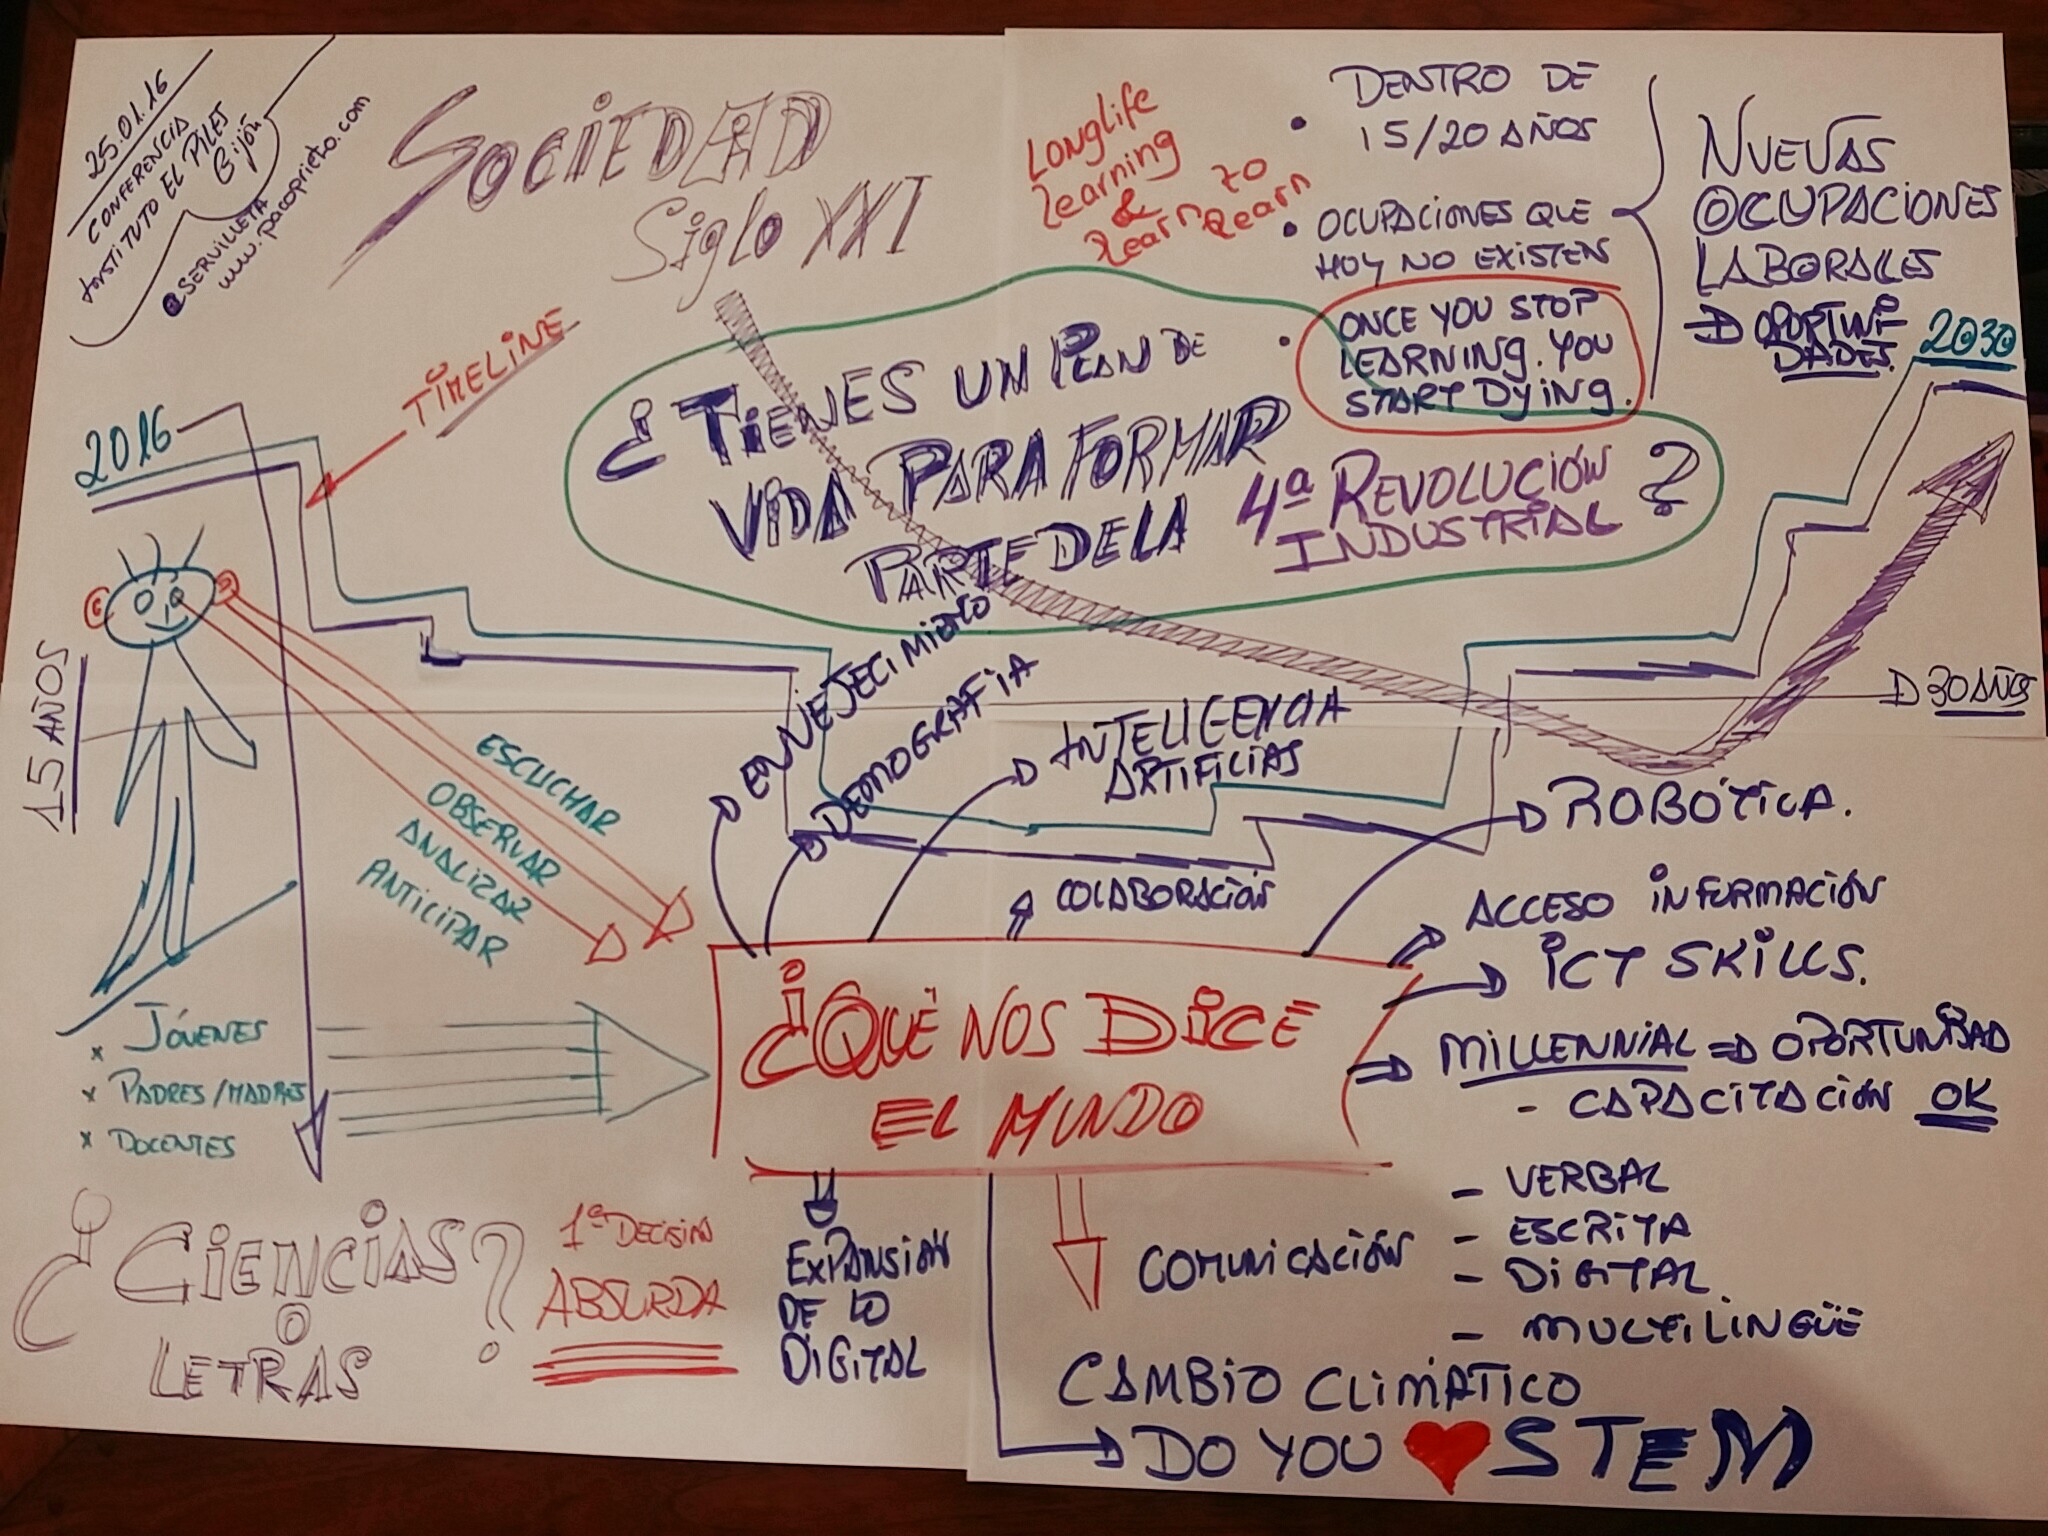 25.01.16
CONFERENCIA
INSTITUTO EL PILES
Gijón
@SERVILLETA
www.pacoprieto.com
SOCIEDAD
Siglo XXI
Longlife
learning
&
learn to
learn
• DENTRO DE
15/20 AÑOS
• OCUPACIONES QUE
HOY NO EXISTEN
• ONCE YOU STOP
LEARNING. YOU
START DYING.
NUEVAS
OCUPACIONES
LABORALES
OPORTUNI-
DADES.
2030
TIMELINE
2016
¿TIENES UN PLAN DE
VIDA PARA FORMAR
PARTE DE LA 4ª REVOLUCIÓN
INDUSTRIAL?
15 AÑOS
30 AÑOS
ESCUCHAR
OBSERVAR
ANALIZAR
ANTICIPAR
ENVEJECIMIENTO
DEMOGRAFIA
INTELIGENCIA
ARTIFICIAS
COLABORACIÓN
ROBÓTICA.
ACCESO INFORMACIÓN
ICT SKILLS.
MILLENNIAL => OPORTUNIDAD
- CAPACITACIÓN OK
x JÓVENES
x PADRES/MADRES
x DOCENTES
¿QUÉ NOS DICE
EL MUNDO
¿CIENCIAS
O
LETRAS?
1ª DECISIÓN
ABSURDA
EXPANSIÓN
DE LO
DIGITAL
COMUNICACIÓN
- VERBAL
- ESCRITA
- DIGITAL
- MULTILINGÜE
CAMBIO CLIMÁTICO
DO YOU ♥ STEM